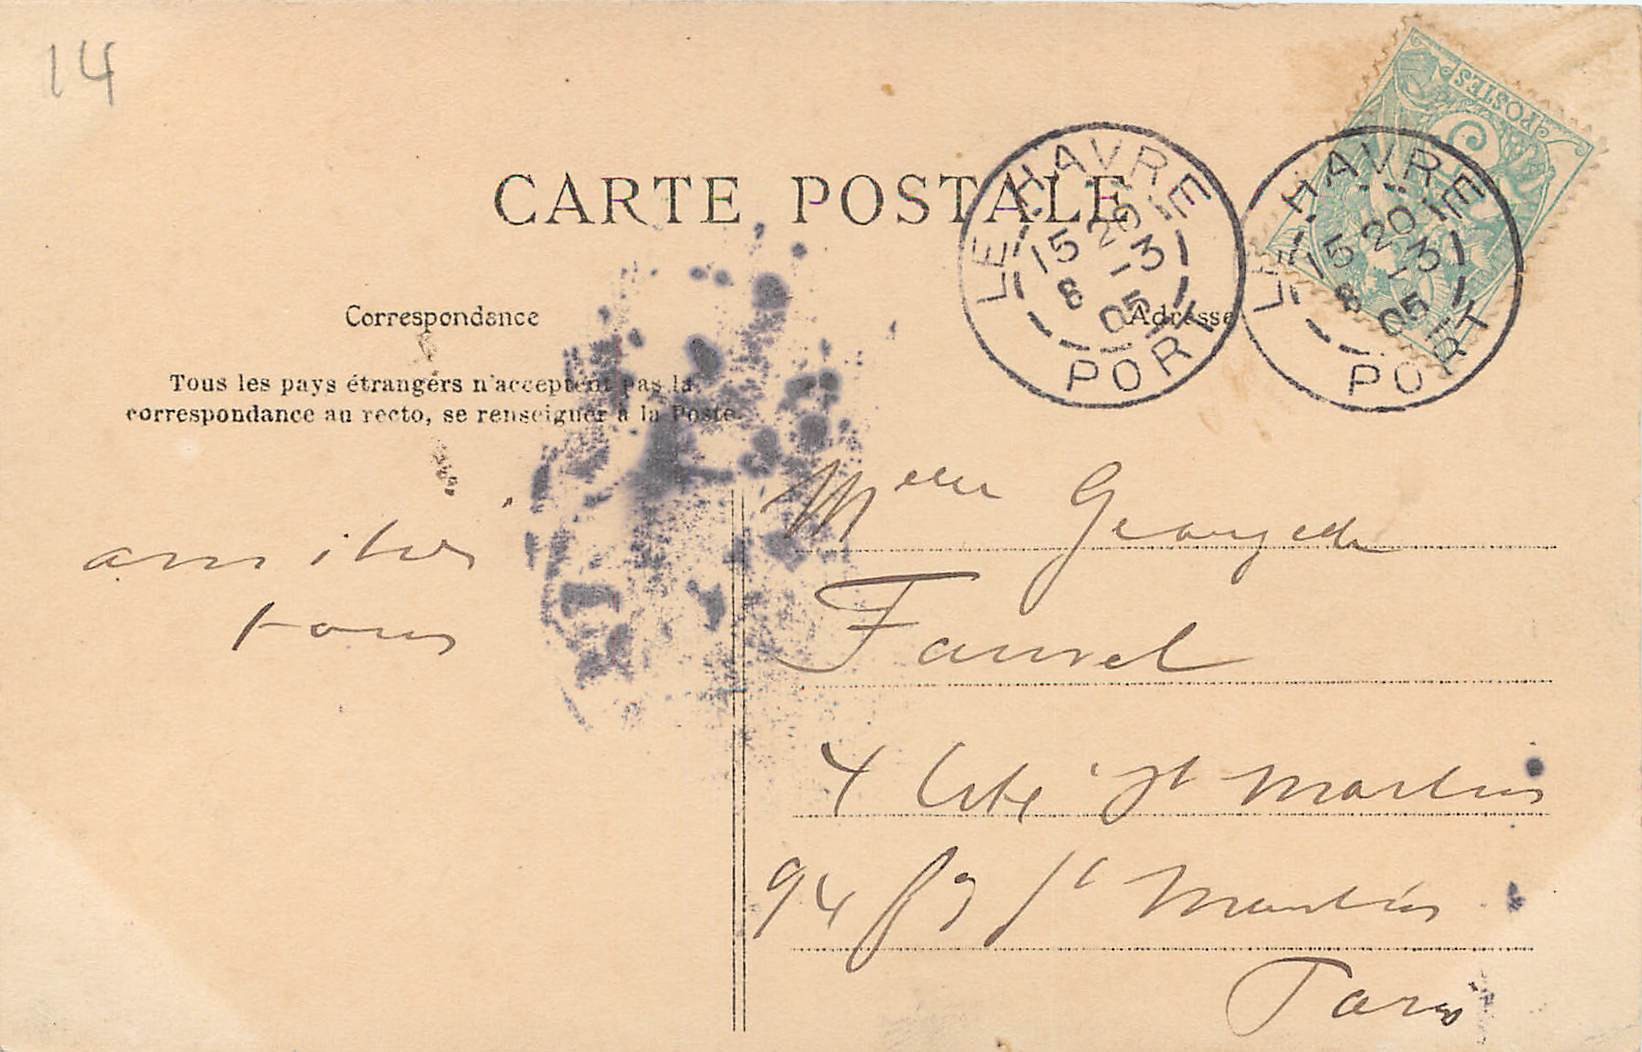 14
CARTE POSTALE
POSTES
5
LE HAVRE
15 20
8 -3
05
PORT
LE HAVRE
15 20
8 -3
05
PORT
Correspondance
Adresse
Tous les pays étrangers n'acceptent pas la
correspondance au recto, se renseigner à la Poste.
amitiés
tous
Melle
Fauvel
4 Cité St Martin
94 Bd St Martin
Paris